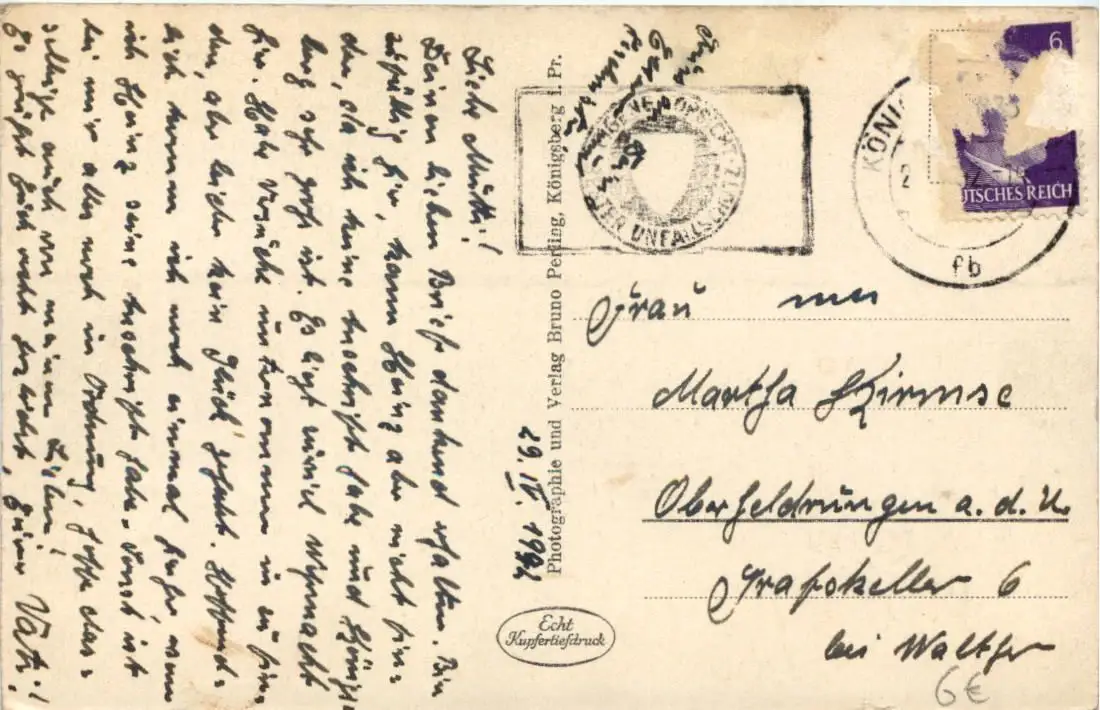 Liebe Mutti!
Deinen lieben Brief dankend erhalten. Bin
zufällig hier, kann Heinz aber nicht fin-
den, da ich keine Anschrift habe und Königs-
berg sehr groß ist. Es liegt soviel Wehrmacht
hier. Habe Versuche unternommen ihn zu fin-
den, aber leider kein Glück gehabt. Hoffent-
lich komm ich noch einmal hierher, wenn
ich Heinz seine Anschrift habe. Sonst ist
bei mir alles noch in Ordnung, hoffe das-
selbige auch von meinen Lieben!
Es grüßt Euch recht herzlichst, Euer Vati!
29. IV. 1942
Photographie und Verlag Bruno Perling, Königsberg i. Pr.
Echt
Kupfertiefdruck
VORSICHT
UNFALLSCHUTZ
KÖNI
fb
6
DEUTSCHES REICH
Frau
Martha Kirmse
Oberheldrungen a. d. U.
Grafskeller 6
bei Walther
6€